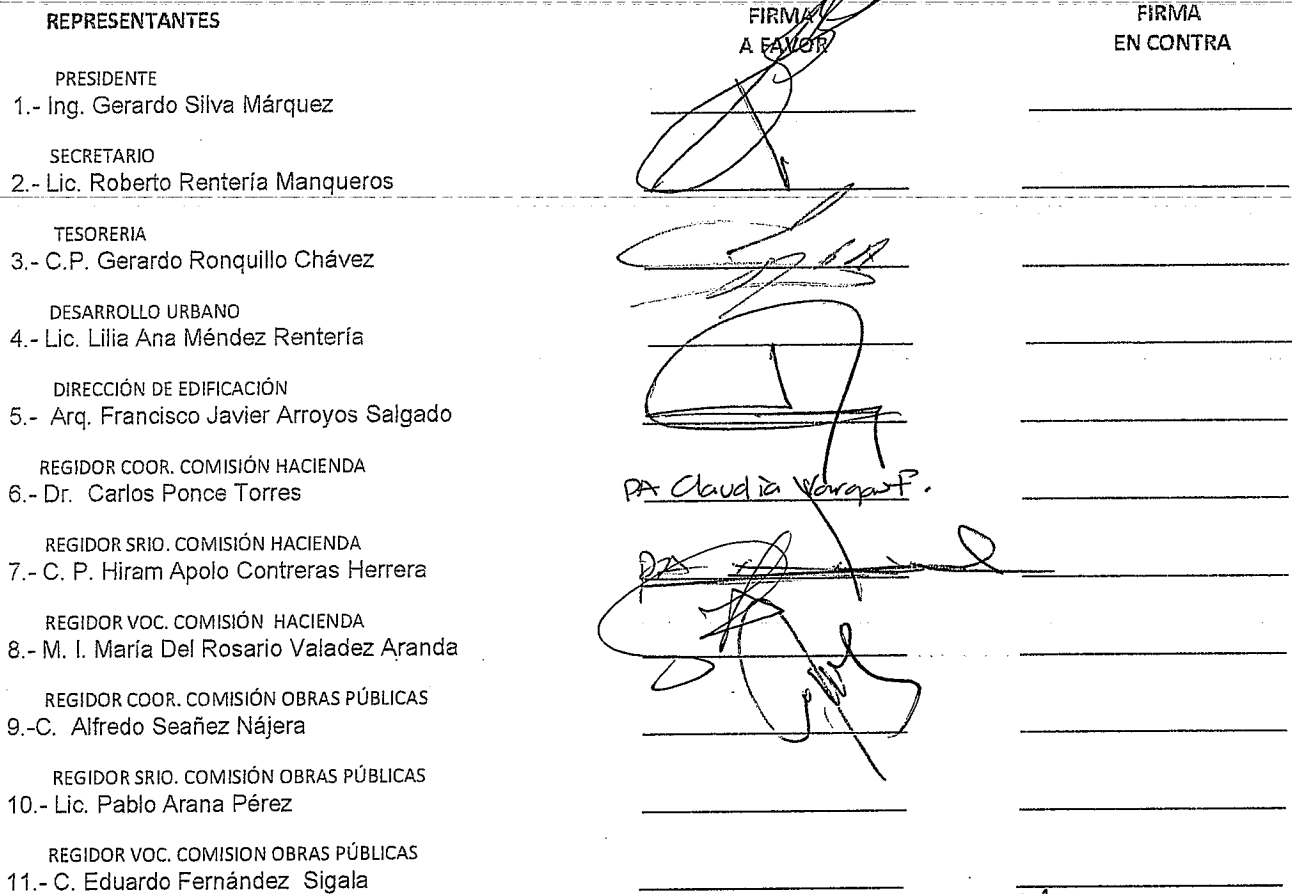 REPRESENTANTES
FIRMA
A FAVOR
FIRMA
EN CONTRA
PRESIDENTE
1.- Ing. Gerardo Silva Márquez
SECRETARIO
2.- Lic. Roberto Rentería Manqueros
TESORERIA
3.- C.P. Gerardo Ronquillo Chávez
DESARROLLO URBANO
4.- Lic. Lilia Ana Méndez Rentería
DIRECCIÓN DE EDIFICACIÓN
5.- Arq. Francisco Javier Arroyos Salgado
REGIDOR COOR. COMISIÓN HACIENDA
6.- Dr. Carlos Ponce Torres
PA Claudia Vargas F.
REGIDOR SRIO. COMISIÓN HACIENDA
7.- C. P. Hiram Apolo Contreras Herrera
PA
REGIDOR VOC. COMISIÓN HACIENDA
8.- M. I. María Del Rosario Valadez Aranda
REGIDOR COOR. COMISIÓN OBRAS PÚBLICAS
9.-C. Alfredo Seañez Nájera
REGIDOR SRIO. COMISIÓN OBRAS PÚBLICAS
10.- Lic. Pablo Arana Pérez
REGIDOR VOC. COMISION OBRAS PÚBLICAS
11.- C. Eduardo Fernández Sigala